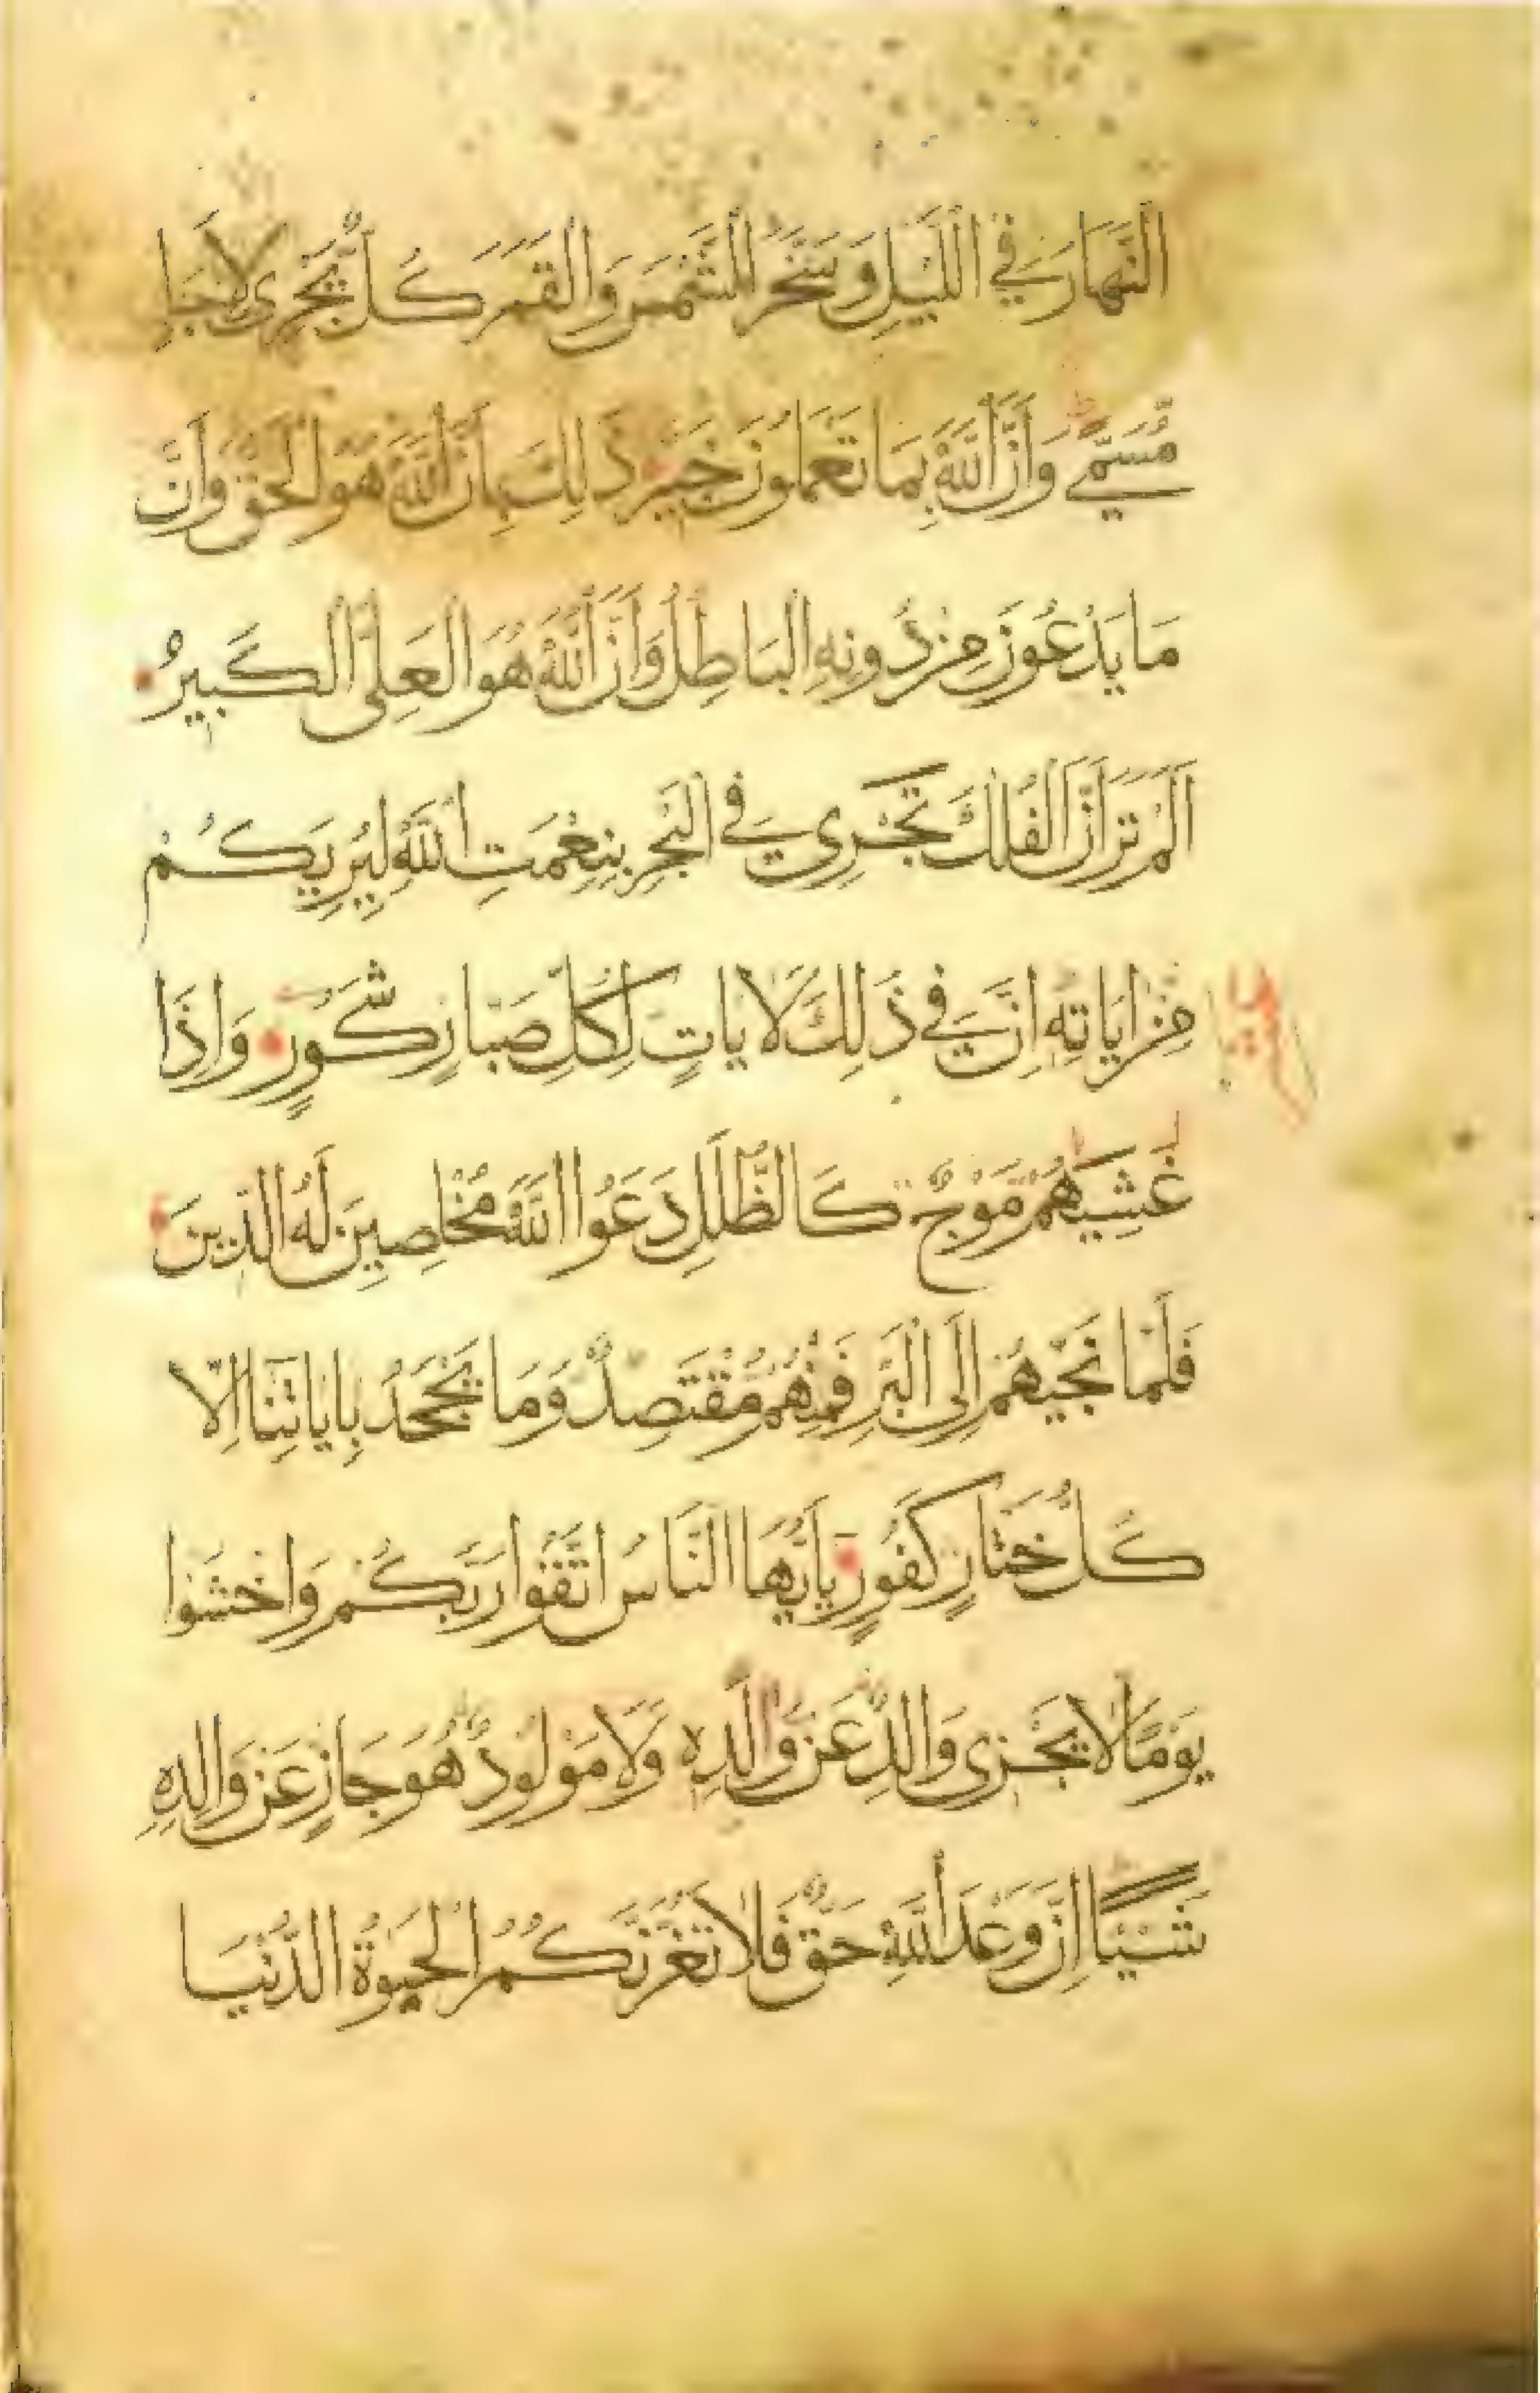 النَّهَارَ فِي اللَّيْلِ وَسَخَّرَ الشَّمْسَ وَالْقَمَرَ كُلٌّ يَجْرِى لِاَجَلٍ
مُّسَمًّى وَاَنَّ اللَّهَ بِمَا تَعْمَلُونَ خَبِيرٌ ذَلِكَ بِاَنَّ اللَّهَ هُوَ الْحَقُّ وَاَنَّ
مَا يَدْعُونَ مِنْ دُونِهِ الْبَاطِلُ وَاَنَّ اللَّهَ هُوَ الْعَلِىُّ الْكَبِيرُ
اَلَمْ تَرَ اَنَّ الْفُلْكَ تَجْرِي فِي الْبَحْرِ بِنِعْمَتِ اللَّهِ لِيُرِيَكُمْ
مِنْ اٰيَاتِهِ اِنَّ فِي ذَلِكَ لَاٰيَاتٍ لِكُلِّ صَبَّارٍ شَكُورٍ وَاِذَا
غَشِيَهُمْ مَوْجٌ كَالظُّلَلِ دَعَوُا اللَّهَ مُخْلِصِينَ لَهُ الدِّينَ
فَلَمَّا نَجَّيهُمْ اِلَى الْبَرِّ فَمِنْهُمْ مُقْتَصِدٌ وَمَا يَجْحَدُ بِاٰيَاتِنَا اِلَّا
كُلُّ خَتَّارٍ كَفُورٍ يَا اَيُّهَا النَّاسُ اتَّقُوا رَبَّكُمْ وَاخْشَوْا
يَوْمًا لَا يَجْزِى وَالِدٌ عَنْ وَلَدِهِ وَلَا مَوْلُودٌ هُوَ جَازٍ عَنْ وَالِدِهِ
شَيْئًا اِنَّ وَعْدَ اللَّهِ حَقٌّ فَلَا تَغُرَّنَّكُمُ الْحَيَوةُ الدُّنْيَا